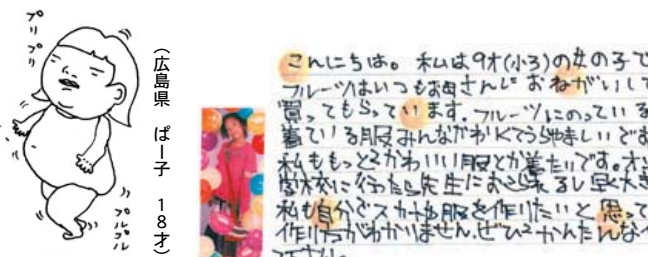 プリプリ
プルプル
（広島県　ぱー子　18才）
こんにちは。私は9才(小3)の女の子で
フルーツはいつもお母さんにおねがいして
買ってもらっています。フルーツにのっている
着ている服みんなかわいくてうらやましいです
私ももっと2かわいい服とか着たいです。
学校に行ったら先生におこられるし早く大き
私も自分でスカートや服を作りたいと思って
作り方がわかりません。ぜひ2かんたんな
下さい。